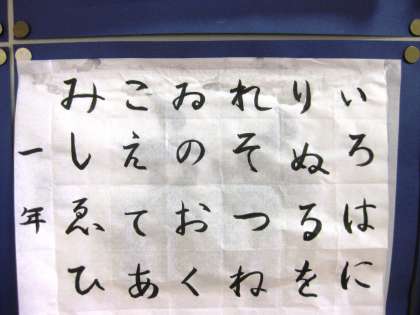 いろはに
りぬるを
れそつね
ゐのおく
こえてあ
みしゑひ
一年